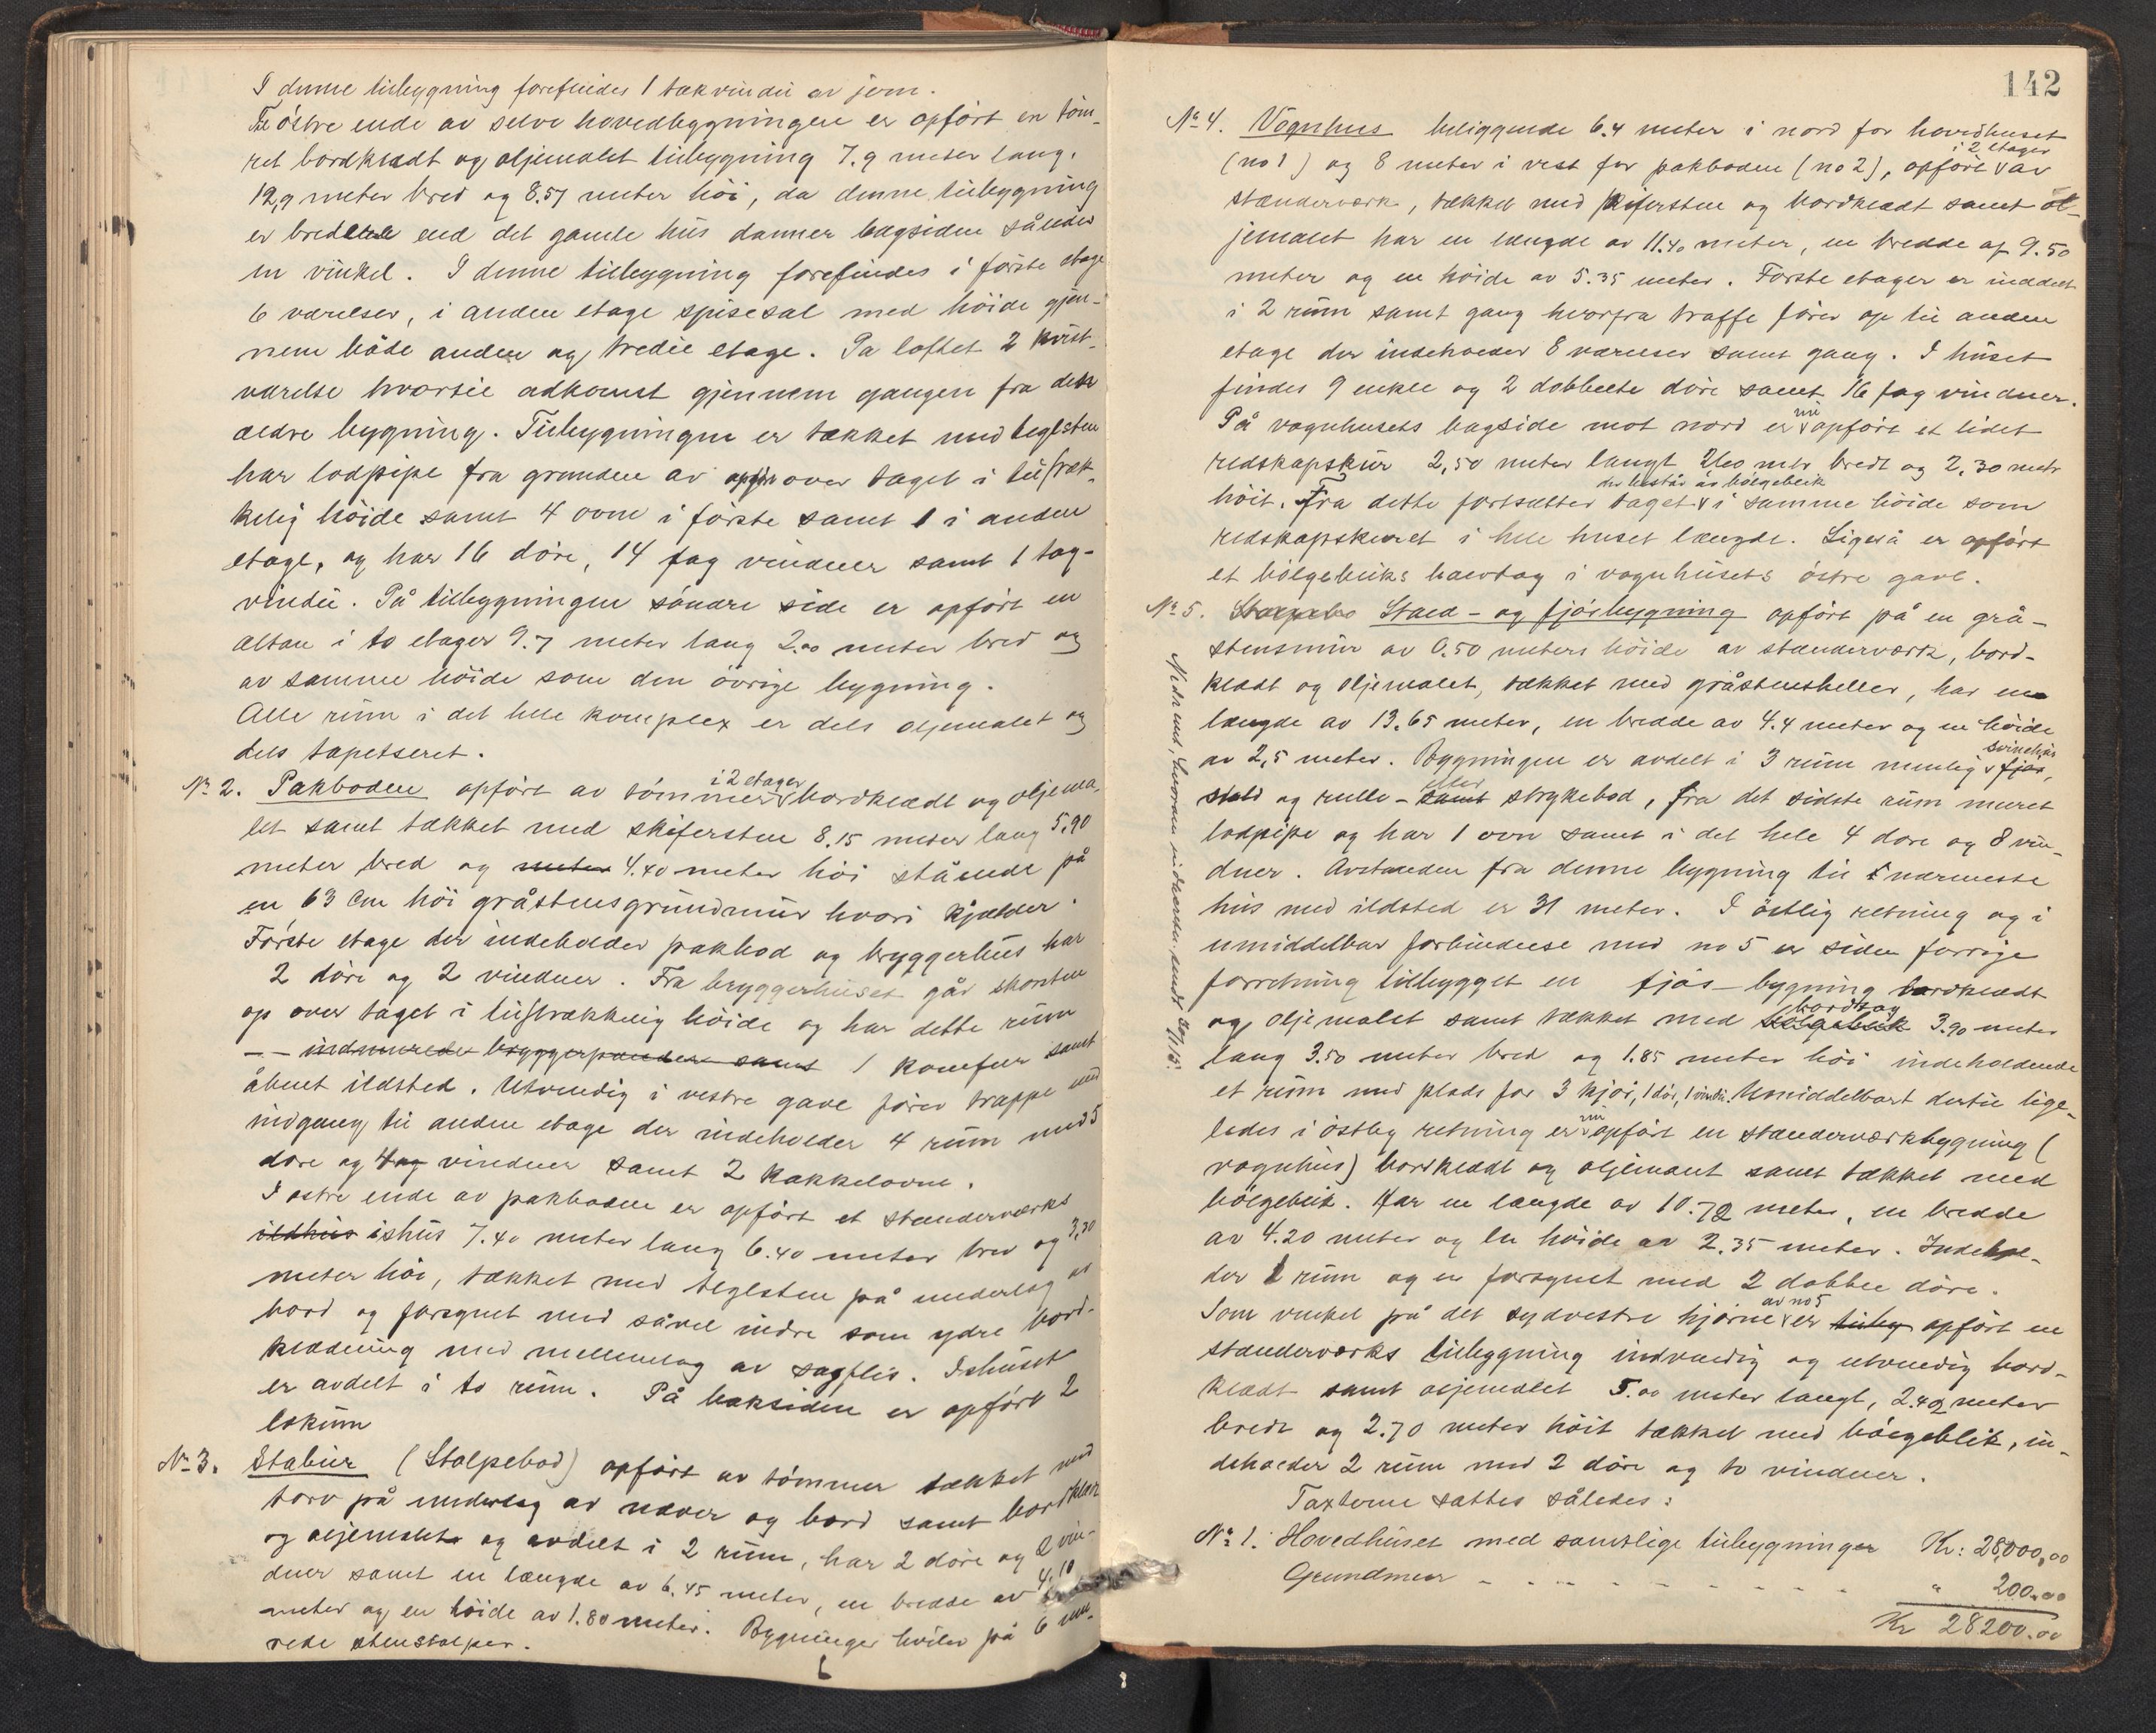 I denne tilbygning forefindes 1 takvindu av jern.
Til østre ende av selve hovedbygningen er opført en tøm-
ret bordklædt og oljemalet tilbygning 7.9 meter lang.
12,9 meter bred og 8.57 meter høi, da denne tilbygning
er bredere end det gamle hus danner bagsiden således
en vinkel. I denne tilbygning forefindes i første etage
6 værelser, i anden etage spisesal med høide gjen-
nem både anden og tredie etage. På loftet 2 kvist-
værelse hvortil adkomst gjennem gangen fra den
ældre bygning. Tilbygningen er tækket med teglsten
har lodpipe fra grunden av over taget i tilstræk-
kelig høide samt 4 ovne i første samt 1 i anden
etage, og har 16 døre, 14 fag vinduer samt 1 tag-
vindu. På tilbygningen søndre side er opført en
altan i to etager 9.7 meter lang 2.00 meter bred og
av samme høide som den øvrige bygning.
Alle rum i det hele komplex er dels oljemalet og
dels tapetseret.
No 2. Pakboden opført av tømmer i 2 etager bordklædt og oljema-
let samt tækket med skifersten 8.15 meter lang 5.90
meter bred og meter 4.40 meter høi stående på
en 63 cm høi gråstensgrundmur hvori kjælder.
Første etage der indeholder pakbod og bryggerhus har
2 døre og 2 vinduer. Fra bryggerhuset går skorsten
op over taget i tilstrækkelig høide og har dette rum
-- indmurede bryggerpander samt 1 komfur samt
åbent ildsted. Utvendig i vestre gavl fører trappe med
indgang til anden etage der indeholder 4 rum med 5
døre og 4 fag vinduer samt 2 kakkelovne.
I østre ende av pakboden er opført et stænderværks
ildhus ishus 7.40 meter lang 6.40 meter bred og 3,30
meter høi, tækket med teglsten på underlag av
bord og forsynet med såvel indre som ydre bord-
klædning med mellemlag av sagflis. Ishuset
er avdelt i to rum. På baksiden er opført 2
lokum
No 3. Stabur (Stolpebod) opført av tømmer tækket med
torv på underlag av næver og bord samt bordklædt
og oljemalet og avdelt i 2 rum, har 2 døre og 2 vin-
duer samt en længde av 6.45 meter, en bredde av 4.10
meter og en høide av 1.80 meter. Bygningen hviler på 6 mu-
rede stenstolper.
142
No 4. Vognhus beliggende 6.4 meter i nord for hovedhuset
(no 1) og 8 meter i vest for pakboden (no 2), opført i 2 etager av
stænderværk, tækket med skifersten og bordklædt samt ol-
jemalet har en længde av 11.40 meter, en bredde af 9.50
meter og en høide av 5.35 meter. Første etager er inddelt
i 2 rum samt gang hvorfra trappe fører op til anden
etage der indeholder 8 værelser samt gang. I huset
findes 9 enkle og 2 dobbelte døre samt 16 fag vinduer.
På vognhusets bagside mot nord er nu opført et lidet
redskapskur 2,50 meter langt 2.00 mtr bredt og 2,30 metr
høit. Fra dette fortsætter taget der består av bølgeblik i samme høide som
redskapskuret i hele huset længde. Ligeså er opført
et bølgebliks halvtag i vognhusets østre gavl.
No 5. Stolpebo Stald- og fjøsbygning opført på en grå-
stensmur av 0.50 meters høide av stænderværk, bord-
klædt og oljemalet, tækket med gråstensheller, har en
længde av 13.65 meter, en bredde av 4.4 meter og en høide
av 2,5 meter. Bygningen er avdelt i 3 rum nemlig svinehus fjøs,
stald og rulle- eller samt strykebod, fra det sidste rum muret
lodpipe og har 1 ovn samt i det hele 4 døre og 8 vin-
duer. Avstanden fra denne bygning til nærmeste
hus med ildsted er 31 meter. I østlig retning og i
umiddelbar forbindelse med no 5 er siden forrige
forretning tilbygget en fjøs-bygning bordklædt
og oljemalet samt tækket med bølgeblik bordtag 3.90 meter
lang 3.50 meter bred og 1.85 meter høi indeholdende
et rum med plads for 3 kjør, 1 dør, 1 vindu. Umiddelbart dertil lige-
ledes i østlig retning er nu opført en stænderværkbygning (
vognhus) bordklædt og oljemalt samt tækket med
bølgeblik. Har en længde av 10.72 meter, en bredde
av 4.20 meter og en høide av 2.35 meter. Indehol-
der 1 rum og er forsynet med 2 dobble døre.
Som vinkel på det sydvestre hjørne av no 5 er tilby opført en
stænderværks tilbygning indvendig og utvendig bord-
klædt samt oljemalet 5.00 meter langt, 2.42 meter
bredt og 2.70 meter høit tækket med bølgeblik, in-
deholder 2 rum med 2 døre og to vinduer.
Taxterne sattes således:
No 1. Hovedhuset med samtlige tilbygninger Kr: 28,000,00
Grundmur - - - - - - - - - " 200.00
Kr 28200.00